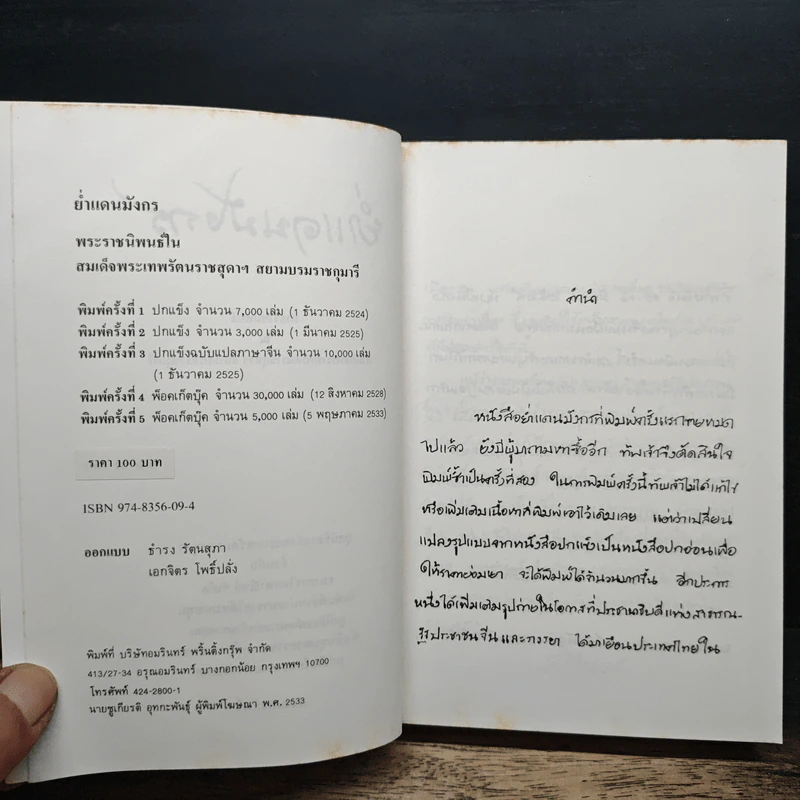 ย่ำแดนมังกร
พระราชนิพนธ์ใน
สมเด็จพระเทพรัตนราชสุดาฯ สยามบรมราชกุมารี
พิมพ์ครั้งที่ 1 ปกแข็ง จำนวน 7,000 เล่ม (1 ธันวาคม 2524)
พิมพ์ครั้งที่ 2 ปกแข็ง จำนวน 3,000 เล่ม (1 มีนาคม 2525)
พิมพ์ครั้งที่ 3 ปกแข็งฉบับแปลภาษาจีน จำนวน 10,000 เล่ม
(1 ธันวาคม 2525)
พิมพ์ครั้งที่ 4 พ็อคเก็ตบุ๊ค จำนวน 30,000 เล่ม (12 สิงหาคม 2528)
พิมพ์ครั้งที่ 5 พ็อคเก็ตบุ๊ค จำนวน 5,000 เล่ม (5 พฤษภาคม 2533)
ราคา 100 บาท
ISBN 974-8356-09-4
ออกแบบ ธำรง รัตนสุภา
เอกจิตร โพธิ์ปลั่ง
พิมพ์ที่ บริษัทอมรินทร์ พริ้นติ้งกรุ๊พ จำกัด
413/27-34 อรุณอมรินทร์ บางกอกน้อย กรุงเทพฯ 10700
โทรศัพท์ 424-2800-1
นายชูเกียรติ อุทกะพันธุ์ ผู้พิมพ์โฆษณา พ.ศ. 2533
คำนำ
หนังสือย่ำแดนมังกรที่พิมพ์ครั้งแรกขายหมด
ไปแล้ว ยังมีผู้มาถามหาซื้ออีก ข้าพเจ้าจึงตัดสินใจ
พิมพ์ซ้ำเป็นครั้งที่สอง ในการพิมพ์ครั้งนี้ข้าพเจ้าไม่ได้แก้ไข
หรือเพิ่มเติมเนื้อหาที่พิมพ์เอาไว้เดิมเลย แต่ว่าเปลี่ยน
แปลงรูปแบบจากหนังสือปกแข็งเป็นหนังสือปกอ่อนเพื่อ
ให้ราคาย่อมเยา จะได้พิมพ์ได้จำนวนมากขึ้น อีกประการ
หนึ่งได้เพิ่มเติมรูปถ่ายในโอกาสที่ประธานาธิบดีแห่งสาธารณ-
รัฐประชาชนจีนและภรรยา ได้มาเยือนประเทศไทยใน